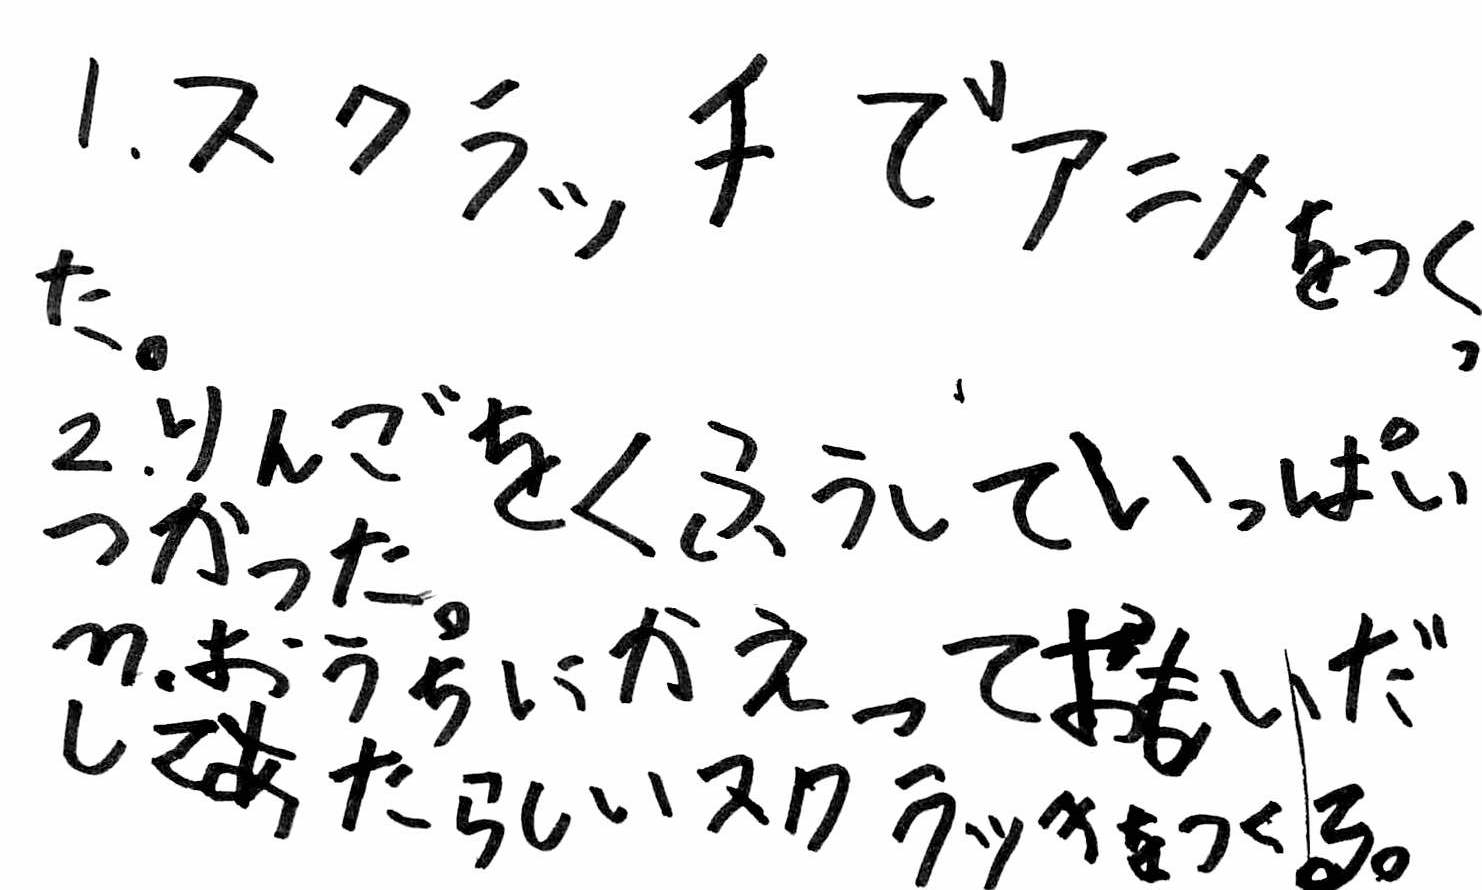 1.スクラッチでアニメをつくっ
た。
2.りんごをくふうしていっぱい
つがった。
3.おうちにかえっておもいだ
してあたらしいスクラッチをつくる。